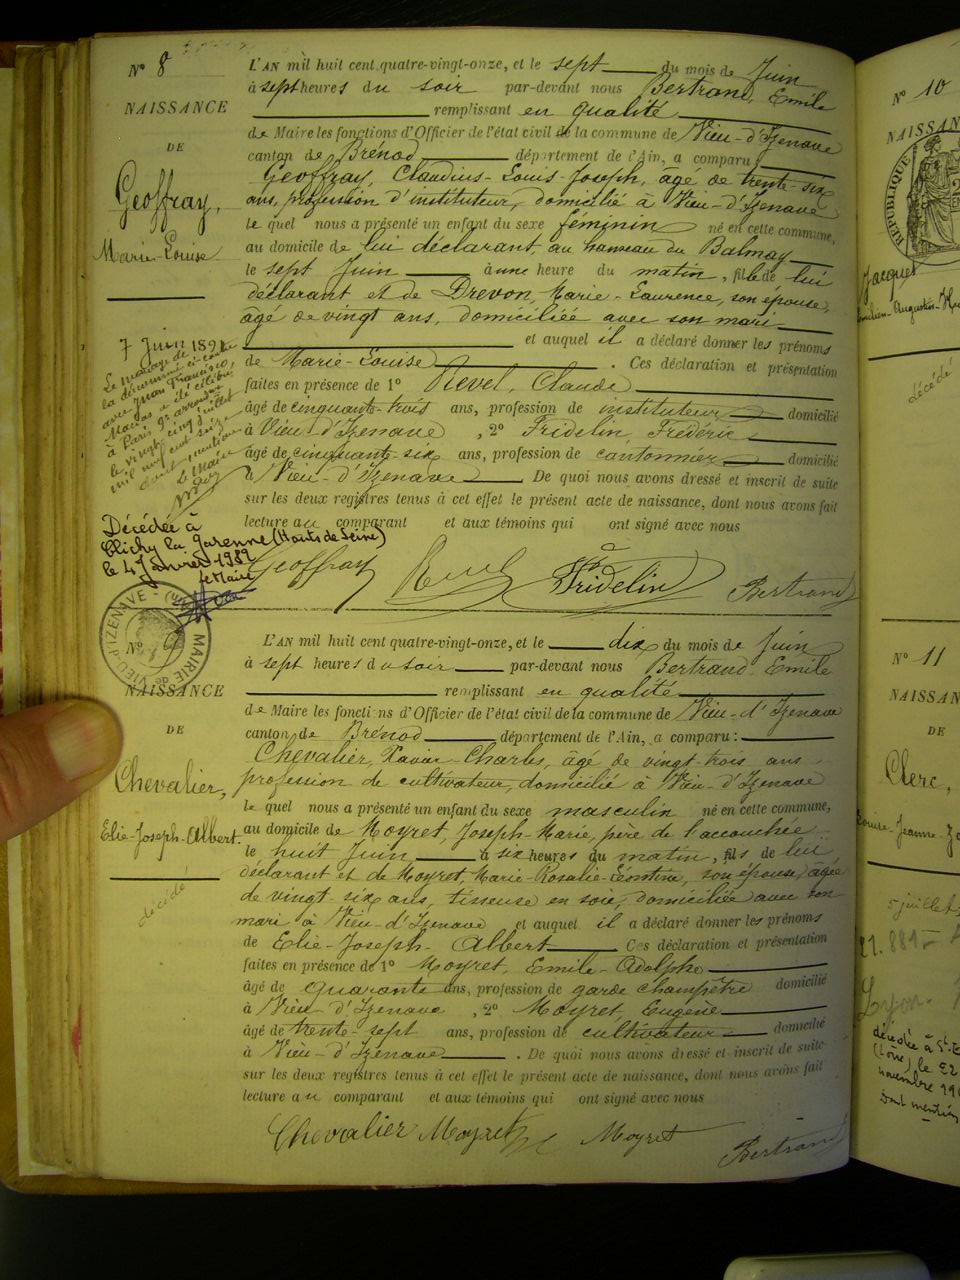 N° 8
NAISSANCE
DE
Geoffray,
Marie-Louise
L'AN mil huit cent quatre-vingt-onze, et le sept du mois de Juin
à sept heures du soir par-devant nous Bertrand, Emile
remplissant en qualité
de Maire les fonctions d'Officier de l'état civil de la commune de Vieu-d'Izenave
canton de Brénod département de l'Ain, a comparu
Geoffray, Claudius-Louis-Joseph, âgé de trente-six
ans, profession d'instituteur, domicilié à Vieu-d'Izenave
le quel nous a présenté un enfant du sexe féminin né en cette commune,
au domicile de lui déclarant, au hameau du Balmay
le sept Juin à une heure du matin, fille de lui
déclarant et de Drevon, Marie-Laurence, son épouse,
âgé de vingt ans, domiciliée avec son mari
et auquel il a déclaré donner les prénoms
de Marie-Louise. Ces déclaration et présentation
faites en présence de 1° Revel, Claude
âgé de cinquante-trois ans, profession de instituteur domicilié
à Vieu-d'Izenave, 2° Fridelin, Frédéric
âgé de cinquante-six ans, profession de cantonnier domicilié
à Vieu-d'Izenave. De quoi nous avons dressé et inscrit de suite
sur les deux registres tenus à cet effet le présent acte de naissance, dont nous avons fait
lecture au comparant et aux témoins qui ont signé avec nous
Geoffray Revel Fridelin Bertrand
7 Juin 1891
Le mariage de
la dénommée ci-contre
avec
a été célébré
à Paris 9e arrondt
le vingt cinq juillet
mil neuf cent seize
dont mention
Le Maire
Décédée à
Clichy la Garenne (Hauts de Seine)
le 4 Janvier 1982
le Maire
MAIRIE de VIEU-D'IZENAVE - (AIN)
N° 9
NAISSANCE
DE
Chevalier,
Elie-Joseph-Albert.
décédé
L'AN mil huit cent quatre-vingt-onze, et le dix du mois de Juin
à sept heures du soir par-devant nous Bertrand Emile
remplissant en qualité
de Maire les fonctions d'Officier de l'état civil de la commune de Vieu-d'Izenave
canton de Brénod département de l'Ain, a comparu :
Chevalier, Xavier-Charles, âgé de vingt-trois ans
profession de cultivateur, domicilié à Vieu-d'Izenave
le quel nous a présenté un enfant du sexe masculin né en cette commune,
au domicile de Moyret, Joseph-Marie, père de l'accouchée
le huit Juin à six heures du matin, fils de lui
déclarant et de Moyret, Marie-Rosalie-Léontine, son épouse, âgée
de vingt-six ans, tisseuse en soie, domiciliée avec son
mari à Vieu-d'Izenave et auquel il a déclaré donner les prénoms
de Elie-Joseph-Albert Ces déclaration et présentation
faites en présence de 1° Moyret, Emile-Adolphe
âgé de quarante ans, profession de garde champêtre domicilié
à Vieu d'Izenave, 2° Moyret, Eugène
âgé de trente-sept ans, profession de cultivateur domicilié
à Vieu-d'Izenave. De quoi nous avons dressé et inscrit de suite
sur les deux registres tenus à cet effet le présent acte de naissance, dont nous avons fait
lecture au comparant et aux témoins qui ont signé avec nous
Chevalier Moyret Moyret Bertrand
N° 10
NAISSANCE
RÉPUBLIQUE
Jacquet
décédé
N° 11
NAISSANCE
DE
Clerc,
5 juillet
Lyon.
décédée à St-E
(Loire) le 22
novembre 19
Dont mention